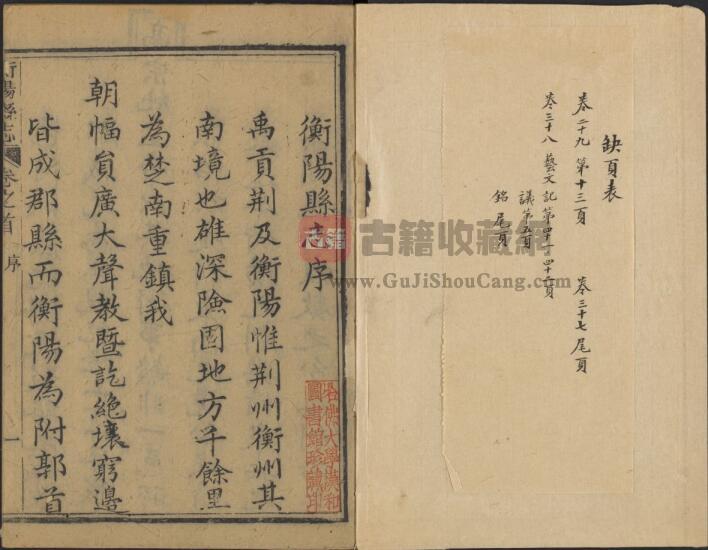 缺頁表
卷二十九 第十三頁 卷三十七 尾頁
卷三十八 藝文記第四十一四十二頁
議第五頁
銘尾頁
衡陽縣志序
禹貢荆及衡陽惟荆州衡州其
南境也雄深險固地方千餘里
為楚南重鎮我
朝幅員廣大聲教曁訖絶壤窮邊
皆成郡縣而衡陽為附郭首
衡陽縣志 卷之首 序 一
哈佛大學漢和
圖書館珍藏印
古籍
古籍收藏网
www.GuJiShouCang.com